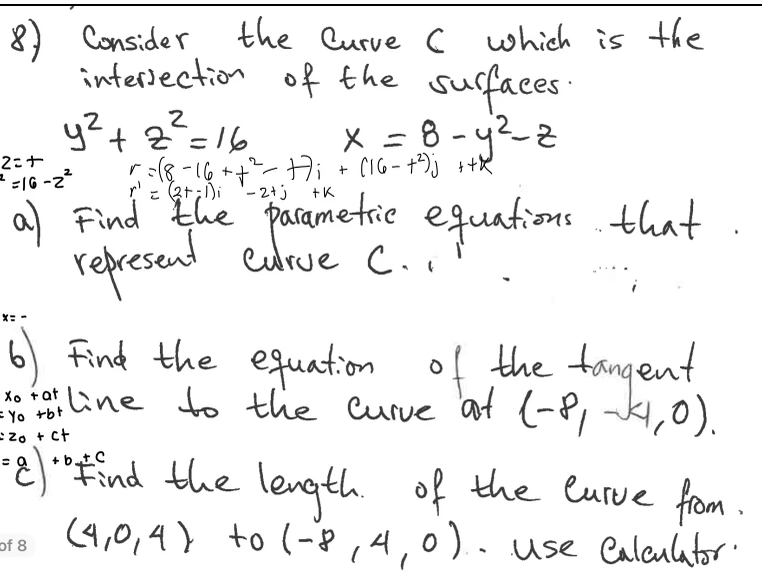 8) Consider the curve C which is the
intersection of the surfaces.
y² + z² = 16   x = 8 - y² - z
z = t   r = (8 - 16 + t² - t)i + (16 - t²)j + tk
² = 16 - z²   r' = (2t - 1)i - 2tj + k
a) Find the parametric equations that
represent curve C.
x = -
b) Find the equation of the tangent
x₀ + at   line to the curve at (-8, -4, 0).
= y₀ + bt
= z₀ + ct
= a + b + c
c) Find the length of the curve from
of 8   (4,0,4) to (-8,4,0). use calculator.